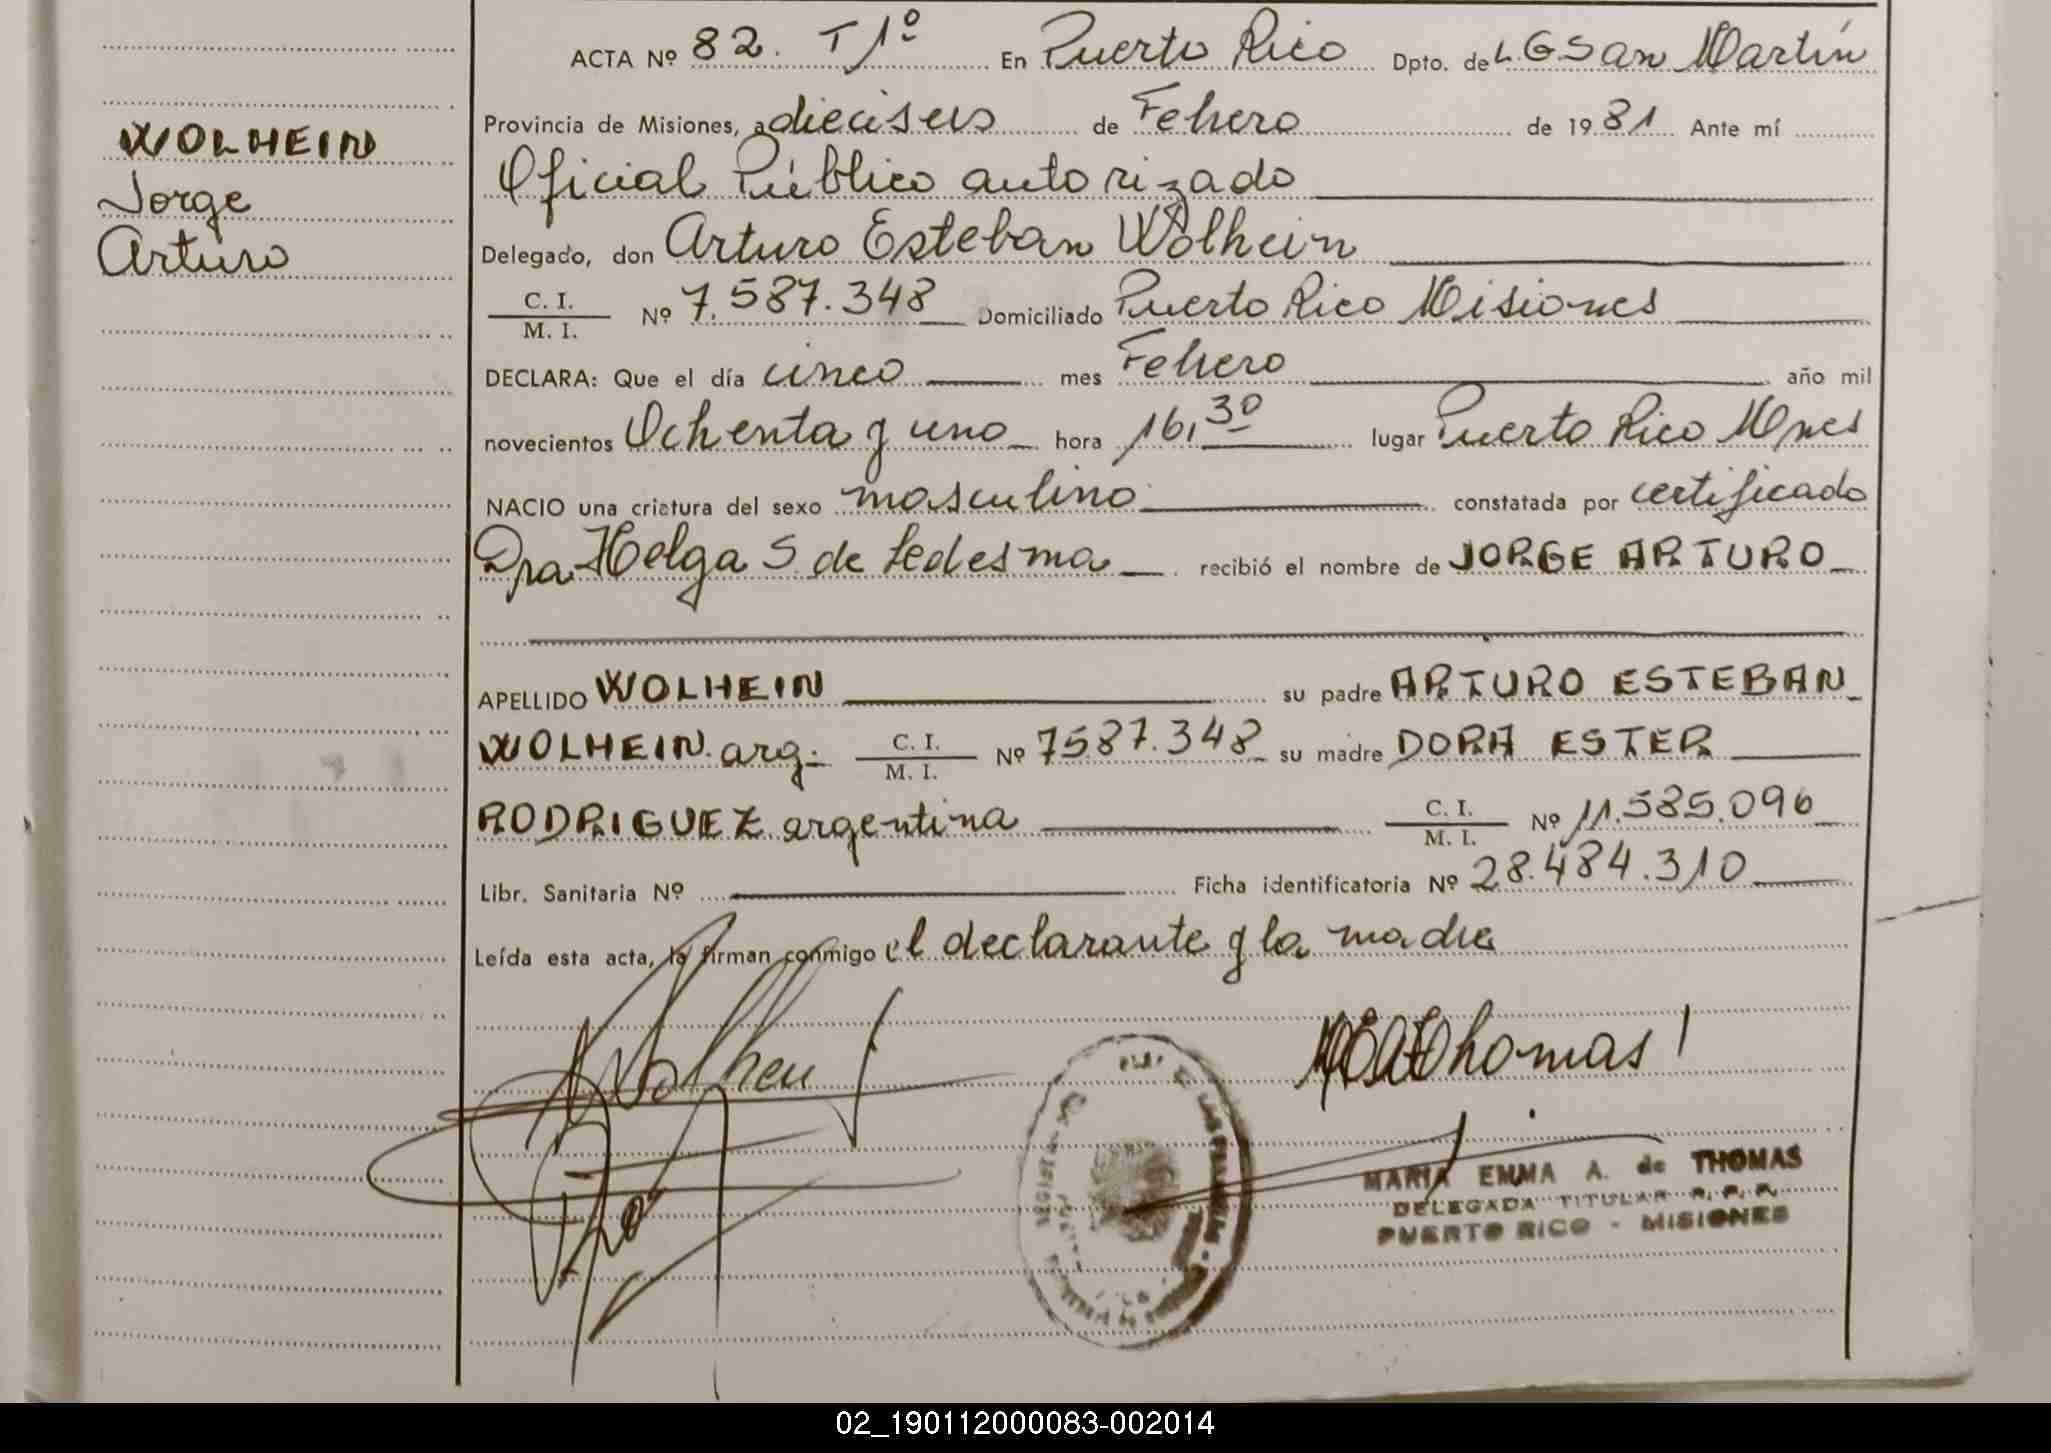 WOLHEIN
Jorge
Arturo
ACTA Nº 82. T 1º En Puerto Rico Dpto. de L.G San Martín
Provincia de Misiones, a dieciseis de Febrero de 1981 Ante mí
Oficial Público autorizado
Delegado, don Arturo Esteban Wolhein
C. I. / M. I. Nº 7.587.348 Domiciliado Puerto Rico Misiones
DECLARA: Que el día cinco mes Febrero año mil
novecientos Ochenta y uno hora 16,30 lugar Puerto Rico Mnes
NACIO una criatura del sexo masculino constatada por certificado
Dra Helga S de Ledesma recibió el nombre de JORGE ARTURO
APELLIDO WOLHEIN su padre ARTURO ESTEBAN
WOLHEIN arg. C. I. / M. I. Nº 7587.348 su madre DORA ESTER
RODRIGUEZ argentina C. I. / M. I. Nº 11.585.096
Libr. Sanitaria Nº Ficha identificatoria Nº 28.484.310
Leída esta acta, la firman conmigo el declarante y la madre
MARIA EMMA A. de THOMAS
DELEGADA TITULAR R. P. P.
PUERTO RICO - MISIONES
02_190112000083-002014